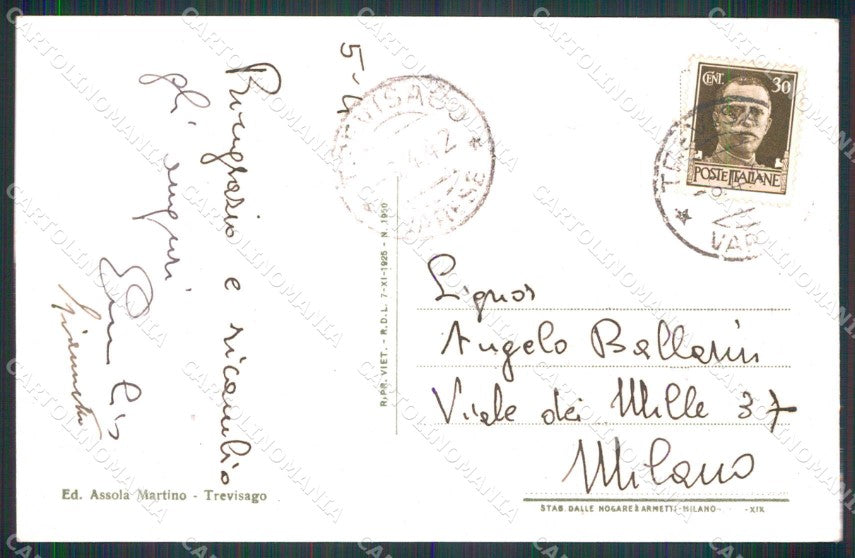 5-4
Ringrazio e ricambio
gli auguri
Gianna
TREVISAGO
4.42
VARESE
CENT. 30
POSTE ITALIANE
VAR
RIPR. VIET. - R.D.L. 7-XI-1925 - N. 1950
Signor
Angelo Ballarin
Viale dei Mille 37
Milano
Ed. Assola Martino - Trevisago
STAB. DALLE NOGARE & ARMETTI - MILANO - XIX
CARTOLINOMANIA